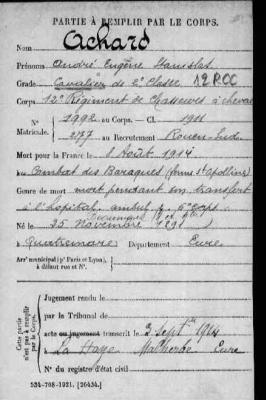 PARTIE À REMPLIR PAR LE CORPS.
Nom Achard
Prénoms André Eugène Stanislas
Grade Cavalier de 2e Classe 12 ROC
Corps 12e Régiment de Chasseurs à cheval
N° 1992 au Corps. — Cl. 1911
Matricule. 2177 au Recrutement Rouen Sud
Mort pour la France le 8 Août 1914
au Combat des Baraques (ferme St Apolline)
Genre de mort mort pendant son transfert
à l'hôpital, ambul. 7. 6e corps
Né le 25 Novembre 1891
à Quatremare Département Eure
Arr' municipal (pr Paris et Lyon), à défaut rue et N°
Cette partie n'est pas à remplir par le Corps.
Jugement rendu le
par le Tribunal de
acte ou jugement transcrit le 3 Septbre 1914
à La Haye Malherbe Eure
N° du registre d'état civil
534-708-1921. [26434.]